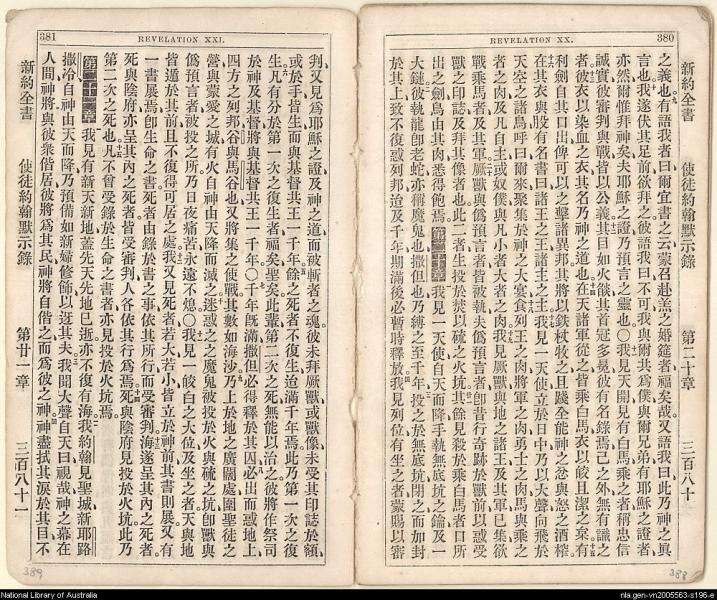 380
REVELATION XX.
新約全書
使徒約翰默示錄
第二十章
三百八十
之義也有語我者曰爾宜書之云蒙召赴羔之婚筵者福矣哉又語我曰此乃神之眞
言也我遂伏其足前欲拜之彼語我曰不可我與爾共爲僕與爾兄弟有耶穌之證者
亦然爾惟拜神矣夫耶穌之證乃預言之靈也〇我見天開見有白馬乘之者稱忠信
誠實彼審判與戰皆以公義其目如火燄其首冠多冕彼有名錄焉己之外無有識之
者彼衣以染血之衣其名乃神之道也在天諸軍從之皆乘白馬衣以皎且潔之枲有
利劍自其口出俾可以之擊諸異邦其將以鉄杖牧之且踐全能神之忿與怒之酒榨
在其衣與股有名書曰諸王之王諸主之主我見一天使立於日中乃以大聲向飛於
天空之諸鳥呼曰爾來聚集於神之大宴食列王之肉將軍之肉勇士之肉馬與乘之
者之肉及凡自主或奴僕與凡小者大者之肉我見厥獸與地之諸王及其軍已集欲
戰乘馬者及其軍厥獸與僞預言者皆被執夫僞預言者卽昔行奇跡於獸前以惑受
獸之印誌及拜其像者也此二者生投於焚以硫之火坑其餘見殺於乘白馬者口所
出之劍鳥由其肉悉得飽焉第二十章我見一天使自天而降手執無底坑之鑰及一
大鏈彼執龍卽老蛇亦稱魔鬼也撒但也乃縛之至千年投之於無底坑閉之而加封
於其上致不復惑列邦迨及千年期滿後必暫時釋放我見列位有坐之者蒙賜以審
388
381
REVELATION XXI.
判又見爲耶穌之證及神之道而被斬者之魂彼未拜厥獸或獸像未受其印誌於額
或於手皆生而與基督共王一千年餘之死者不復生迨滿千年焉此乃第一次之復
生凡有分於第一次之復生者福矣聖矣此輩第二次之死無能以治之彼將作祭司
於神及基督將與基督共王一千年〇千年旣滿撒但必得釋於其囚必出而惑地上
四方之列邦谷與馬谷也又將集之使戰其數如海沙乃上於地之廣闊處圍聖徒之
營與蒙愛之城有火自神由天降而滅之迷惑之之魔鬼被投於火與硫之坑卽獸與
僞預言者被投之所乃日夜痛苦永遠不熄〇我見一皎白之大位及坐之者天與地
皆遁於其前且不復得可居之處我又見死者若大若小皆立於神前其書則展又有
一書展焉卽生命之書死者由錄於書之事依其所行而受審判海遂呈其內之死者
死與陰府亦呈其內之死者皆受審判人各依其行爲焉死與陰府見投於火坑此乃
第二次之死也凡不曾受錄於生命之書者亦見投於火坑焉
第二十一章我見有新天新地蓋先天先地已逝亦不復有海我約翰見聖城新耶路
撒冷自神由天而降乃預備如新婦修飾以迓其夫我聞大聲自天曰視哉神之幕在
人間神將與彼衆偕居彼將爲其民神將自偕之而爲彼之神神盡拭其淚於其目不
新約全書
使徒約翰默示錄
第廿一章
三百八十一
389
National Library of Australia
nla.gen-vn2005563-s196-e